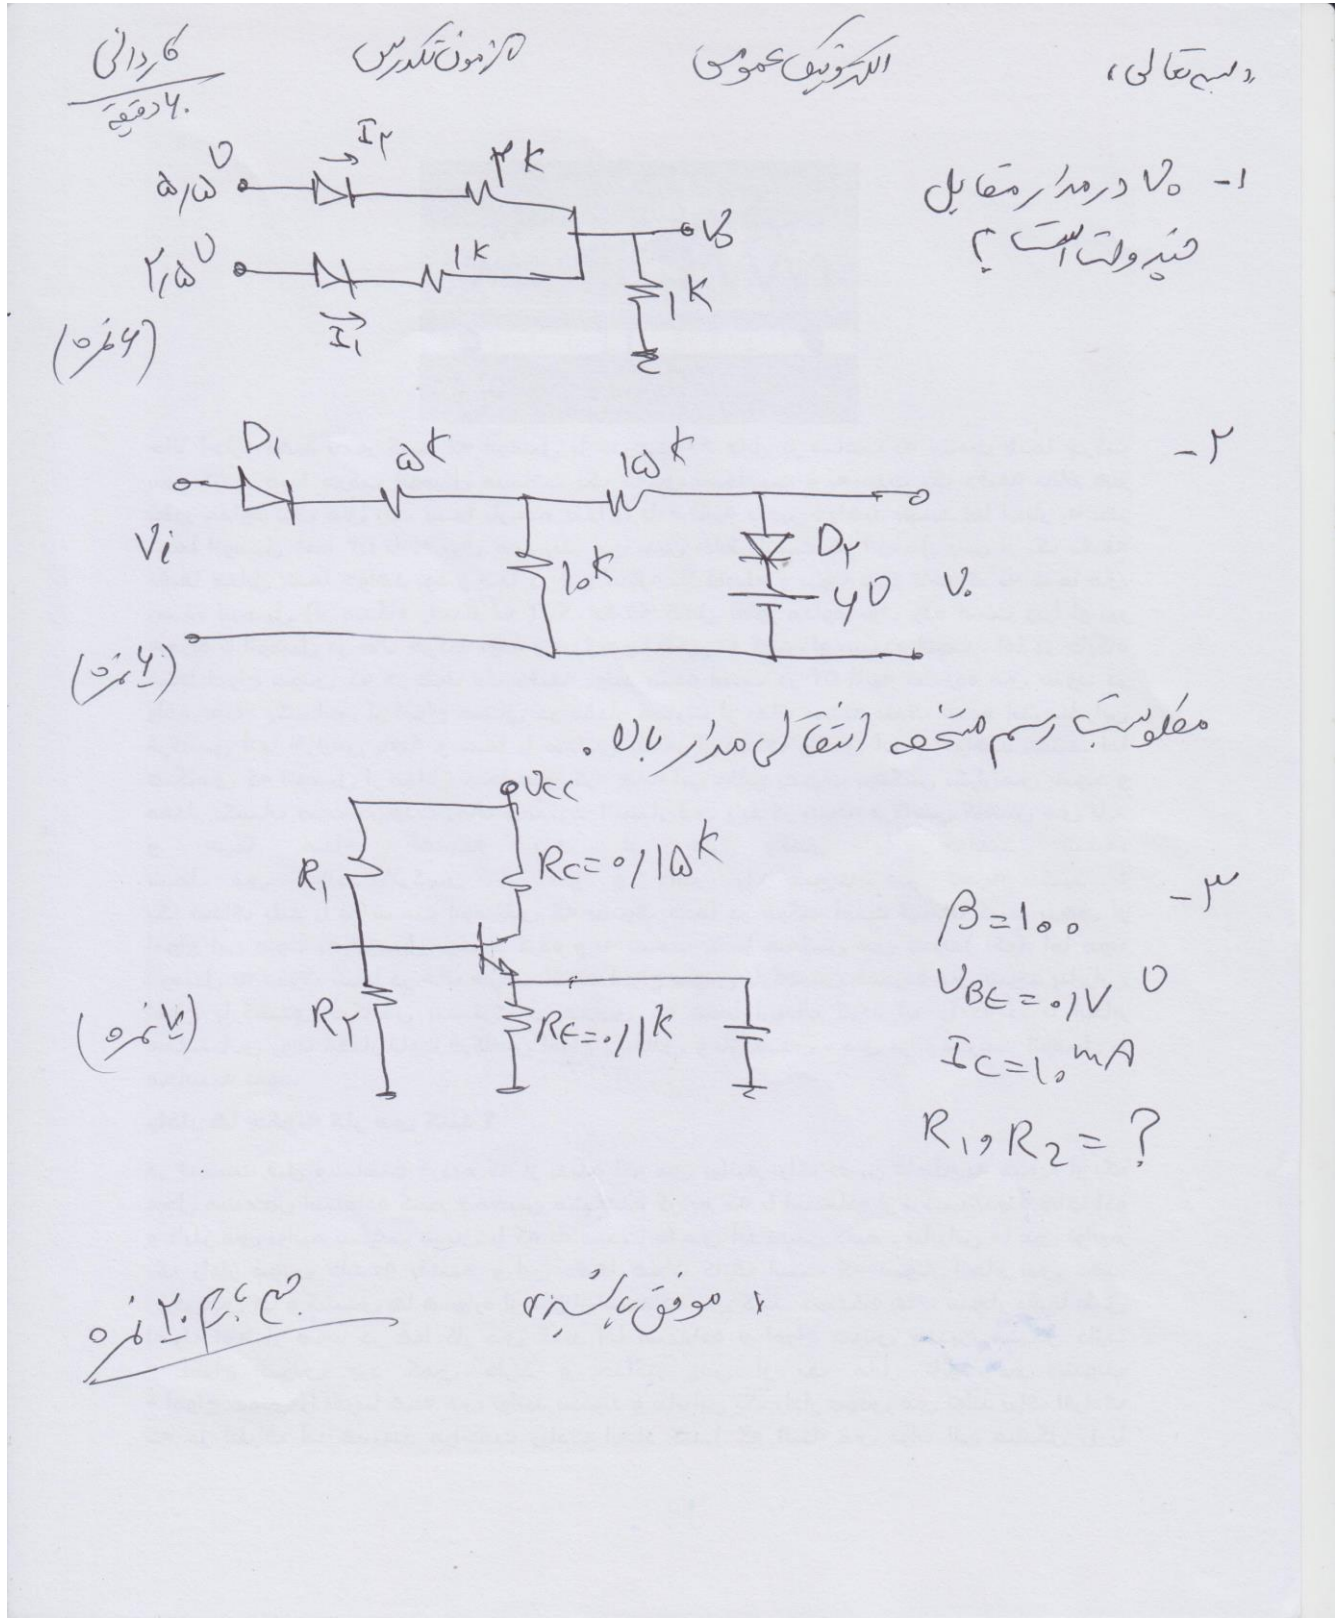 «بسمه تعالی» الکترونیک عمومی آزمون تکدرس کاردانی
۶۰ دقیقه
۱- V₀ در مدار مقابل
چند ولت است؟
۵٫۵ V I۲ ۲K
V₀
۲٫۵ V ۱K
I۱ ۱K
(۶ نمره)
۲-
D۱ ۵K ۱۵K
Vi ۱۰K D۲ ۶V V₀
(۶ نمره)
مطلوبست رسم مشخصه انتقالی مدار بالا.
VCC
R۱ RC=۰٫۱۵K
۳- β=۱۰۰
VBE=۰٫۷ V
R۲ RE=۰٫۱K
(۷ نمره)
IC=۱۰ mA
R1, R2 = ?
«موفق باشید»
جمع بارم ۲۰ نمره